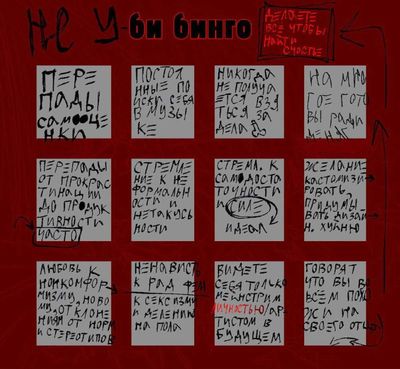 Не У-би бинго
ДЕЛАЕТЕ
ВСЕ ЧТОБЫ
НАЙТИ
СЧАСТЬЕ
ПЕРЕ
ПАДЫ
САМООЦЕ
НКИ
ПОСТОЯ
ННЫЕ ПО
ИСКИ СЕБЯ
В МУЗЫ
КЕ
НИКОГДА
НЕ ПОЛУЧА
ЕТСЯ ВЗЯ
ТЬСЯ ЗА
ДЕЛА
НА МНО
ГОЕ ГОТО
ВЫ РАДИ
ДЕНЕГ
ПЕРЕПАДЫ
ОТ ПРОКРАС
ТИНАЦИИ
ДО ПРОДУК
ТИВНОСТИ
ЧАСТО
СТРЕМЛЕ
НИЕ К НЕ
ФОРМАЛЬ
НОСТИ И
НЕТАКУСЬ
НОСТИ
СТРЕМЛ. К
САМОДОСТА
ТОЧНОСТИ
И СИЛЕ
ИДЕАЛ
ЖЕЛАНИЕ
КАСТОМИЗИ
РОВАТЬ,
ПРИДУМЫ
ВАТЬ ДИЗАЙ
Н. ХУЙНЮ
ЛЮБОВЬ К
НОНКОНФОР
МИЗМУ, НОВО
МУ, ОТКЛОНЕ
НИЯМ ОТ НОРМ
И СТЕРЕОТИПОВ
НЕНАВИСТЬ
К РАД ФЕМ
К СЕКСИЗМУ
И ДЕЛЕНИЮ
НА ПОЛА
ВИДИТЕ
СЕБЯ ТОЛЬКО
МЕЙНСТРИМ
ЛИЧНОСТЬЮ/АР
ТИСТОМ В
БУДУЩЕМ
ГОВОРЯТ
ЧТО ВЫ ВО
ВСЁМ ПОХО
ЖИ НА
СВОЕГО ОТЦА